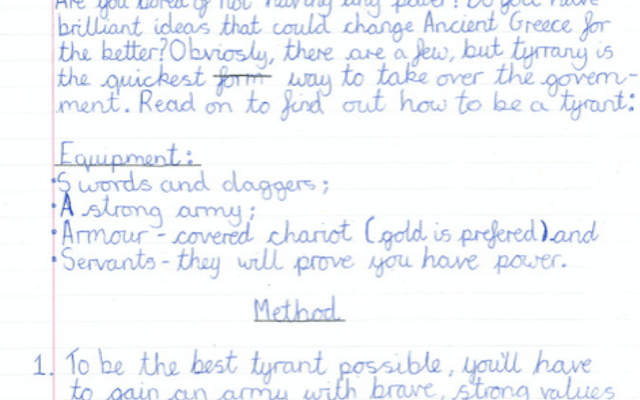 Are you bored of not having any power? Do you have
brilliant ideas that could change Ancient Greece for
the better? Obviosly, there are a few, but tyrrany is
the quickest form way to take over the govern-
ment. Read on to find out how to be a tyrant:
Equipment:
•Swords and daggers;
•A strong army;
•Armour - covered chariot (gold is prefered) and
•Servants - they will prove you have power.
Method
1. To be the best tyrant possible, you'll have
to gain an army with brave, strong values